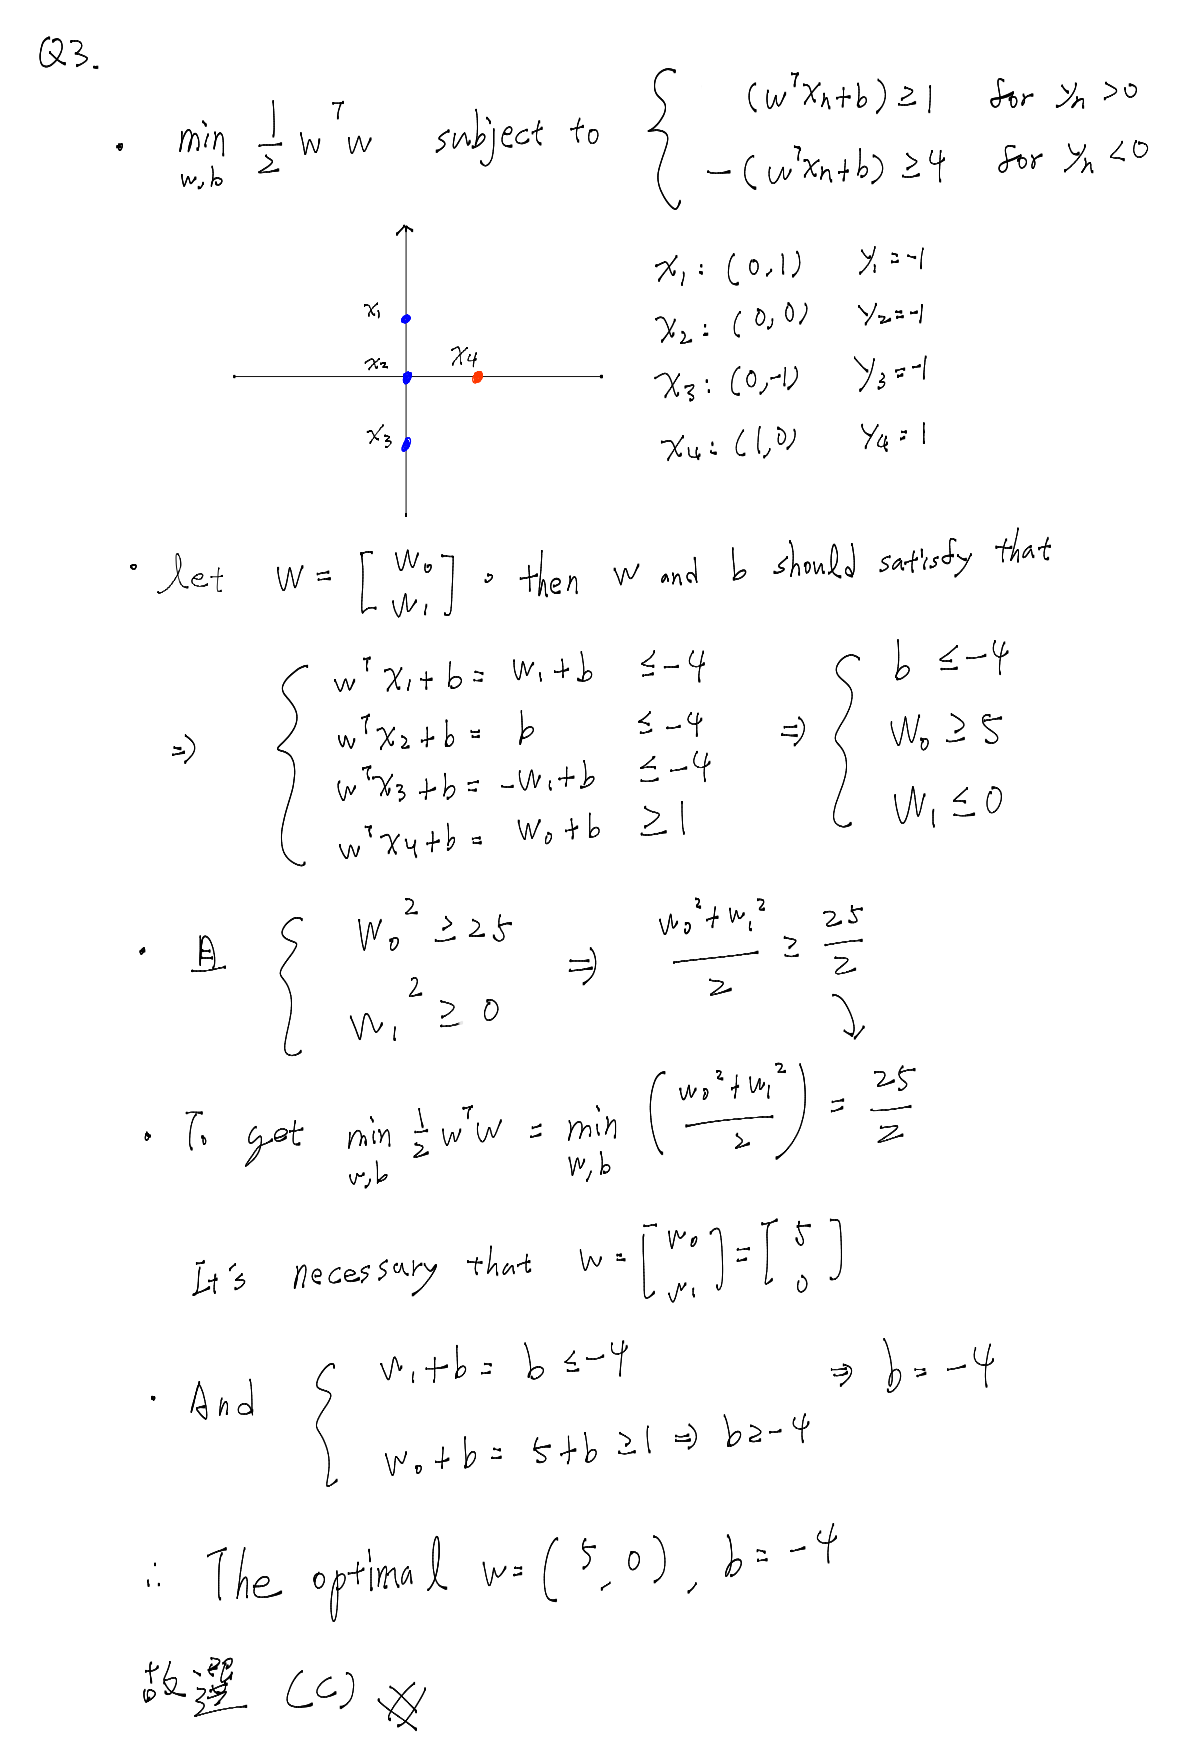 Q3.
• min w,b 1/2 wᵀw subject to { (wᵀxₙ+b) ≥ 1 for yₙ > 0
-(wᵀxₙ+b) ≥ 4 for yₙ < 0
x₁: (0,1) y₁ = -1
x₂: (0,0) y₂ = -1
x₃: (0,-1) y₃ = -1
x₄: (1,0) y₄ = 1
x₁
x₂ x₄
x₃
• let w = [w₀ w₁]。then w and b should satisfy that
⇒ { wᵀx₁+b = w₁+b ≤ -4
wᵀx₂+b = b ≤ -4
wᵀx₃+b = -w₁+b ≤ -4
wᵀx₄+b = w₀+b ≥ 1
⇒ { b ≤ -4
w₀ ≥ 5
w₁ ≤ 0
• 且 { w₀² ≥ 25
w₁² ≥ 0
⇒ (w₀²+w₁²)/2 ≥ 25/2
• To get min w,b 1/2 wᵀw = min w,b ((w₀²+w₁²)/2) = 25/2
It's necessary that w = [w₀ w₁] = [5 0]
• And { w₁+b = b ≤ -4
w₀+b = 5+b ≥ 1 ⇒ b ≥ -4
⇒ b = -4
∴ The optimal w = (5,0), b = -4
故選 (C)